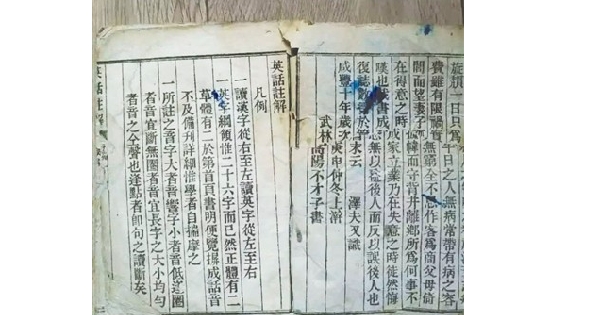 旋積一日只為半日之人無病常帶有病之客
費雖有限關實無第全不作客為商父母倚
閭而望妻子倚幃而守背井離鄉所為何事不
在得意之時成家立業乃在失意之時徒然悔
嘆也我書成願無以益後人而反以誤後人也
復誌數語於
咸豐十年歲次庚申仲冬上澣 澤夫又識
武林高陽不才子書
英話註解
凡例
一讀漢字從右至左讀英字從左至右
一英字綱領惟二十六字而已然正體有二
草體有二於第首頁書明便覽擇成話音
不及備刊詳細惟學者自揣摩之
一所註之音字大者音響字小者音低逢圈
者音宜斷無圈者音宜長字之大小均勻
者音之公聲也逢點者即句之讀斷矣
英話註解